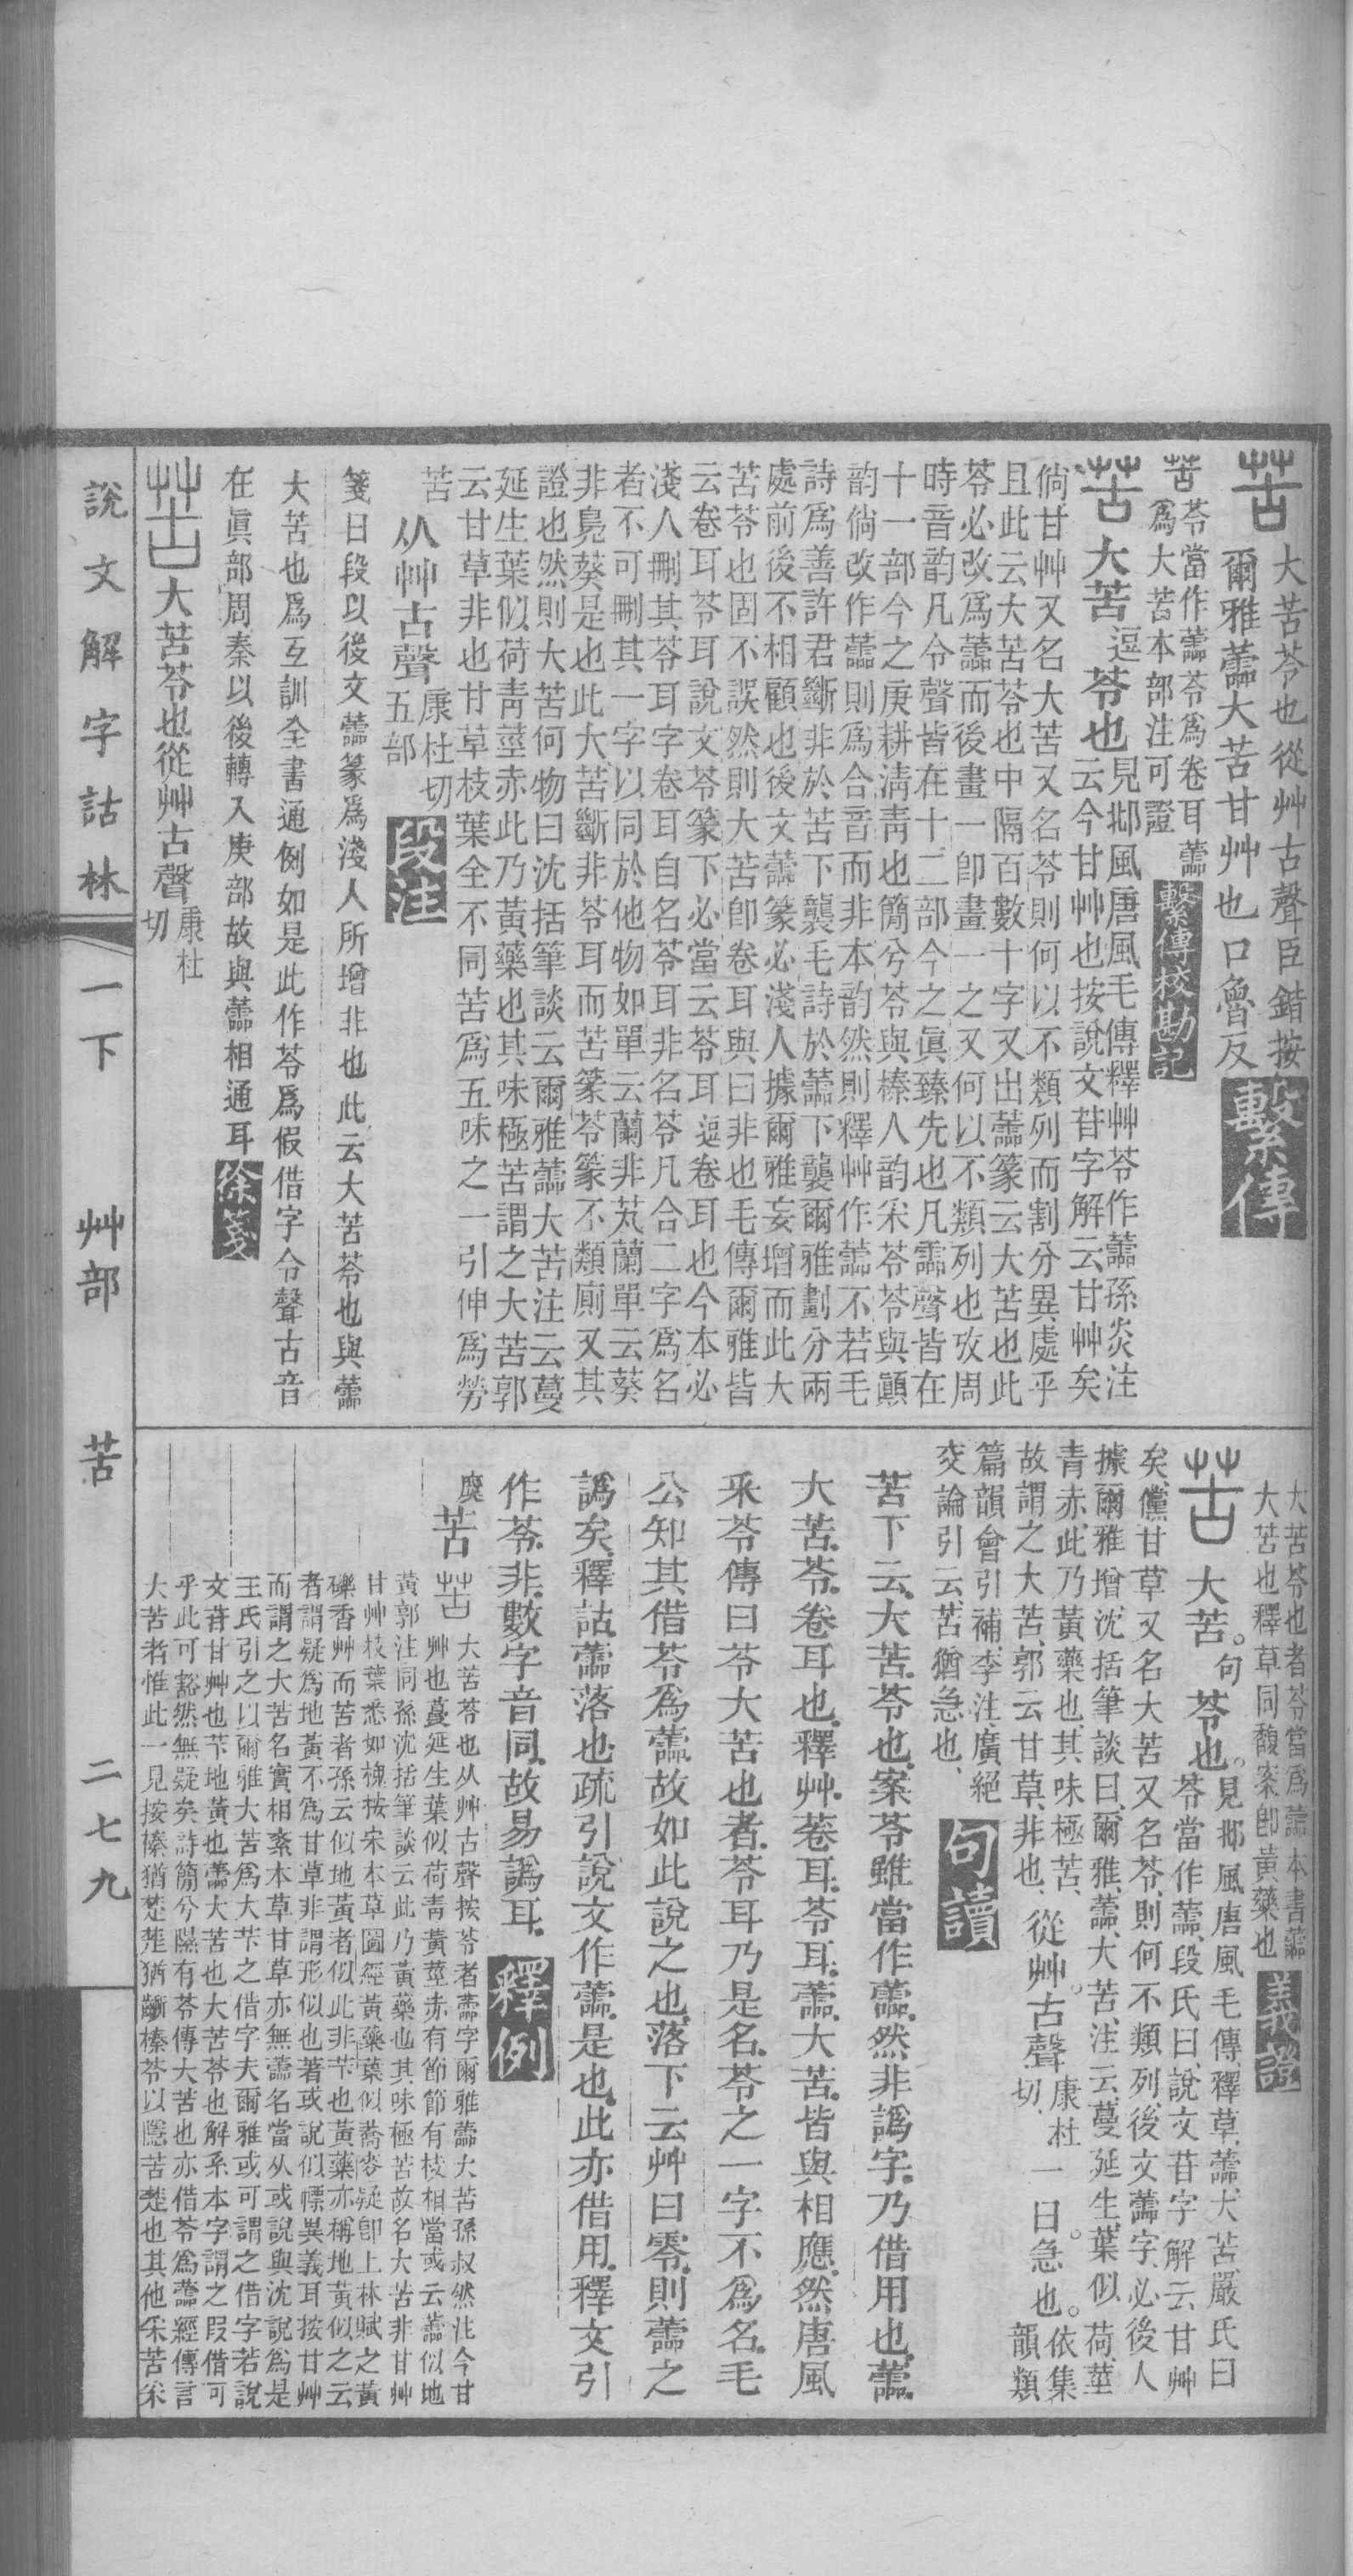 苦
大苦苓也從艸古聲臣鍇按
爾雅蘦大苦甘艸也口魯反
繫傳
苦
苓當作蘦苓爲卷耳蘦
爲大苦本部注可證
繫傳校勘記
苦
大苦逗苓也
見邶風唐風毛傳釋艸苓作蘦孫炎注
云今甘艸也按說文苷字解云甘艸矣
倘甘艸又名大苦又名苓則何以不類列而割分異處乎
且此云大苦苓也中隔百數十字又出蘦篆云大苦也此
苓必改爲蘦而後畫一卽畫一之又何以不類列也攷周
時音韵凡令聲皆在十二部今之眞臻先也凡霝聲皆在
十一部今之庚耕淸靑也簡兮苓與榛人韵采苓苓與顚
韵倘改作蘦則爲合音而非本韵然則釋艸作蘦不若毛
詩爲善許君斷非於苦下襲毛詩於蘦下襲爾雅劃分兩
處前後不相顧也後文蘦篆必淺人據爾雅妄增而此大
苦苓也固不誤然則大苦卽卷耳與曰非也毛傳爾雅皆
云卷耳苓耳說文苓篆下必當云苓耳逗卷耳也今本必
淺人刪其苓耳字卷耳自名苓耳非名苓凡合二字爲名
者不可刪其一字以同於他物如單云蘭非芄蘭單云葵
非鳧葵是也此大苦斷非苓耳而苦篆苓篆不類厠又其
證也然則大苦何物曰沈括筆談云爾雅蘦大苦注云蔓
延生葉似荷靑莖赤此乃黃藥也其味極苦謂之大苦郭
云甘草非也甘草枝葉全不同苦爲五味之一引伸爲勞
苦
从艸古聲
康杜切
五部
段注
箋曰段以後文蘦篆爲淺人所增非也此云大苦苓也與蘦
大苦也爲互訓全書通例如是此作苓爲假借字令聲古音
在眞部周秦以後轉入庚部故與蘦相通耳
徐箋
苦
大苦苓也從艸古聲
康杜
切
說文解字詁林
一下
艸部
苦
二七九
大苦苓也者苓當爲蘦本書蘦
大苦也釋草同馥案卽黃藥也
義證
苦
大苦。句苓也。
見邶風唐風毛傳、釋草、蘦、大苦、嚴氏曰
苓當作蘦、段氏曰、說文苷字解云甘艸
矣、儻甘草又名大苦又名苓、則何不類列、後文蘦字、必後人
據爾雅增、沈括筆談曰、爾雅、蘦、大苦、注云、蔓延生、葉似荷、莖
青赤、此乃黃藥也、其味極苦、
故謂之大苦、郭云甘草、非也、
從艸。古聲
康杜
切、
一曰。急也。
依集
韻類
篇韻會引補、李注廣絕
交論引云、苦猶急也、
句讀
苦下云、大苦、苓也、案苓雖當作蘦、然非譌字、乃借用也、蘦、
大苦、苓、卷耳也、釋艸、菤耳、苓耳、蘦、大苦、皆與相應、然唐風
采苓傳曰苓大苦也者、苓耳乃是名、苓之一字不爲名、毛
公知其借苓爲蘦、故如此說之也、落下云艸曰零、則蘦之
譌矣、釋詁、蘦落也、疏引說文作蘦、是也、此亦借用、釋文引
作苓、非、數字音同、故易譌耳、
釋例
麌
苦
苦
大苦苓也从艸古聲按苓者蘦字爾雅蘦大苦孫叔然注今甘
艸也蔓延生葉似荷青黃莖赤有節節有枝相當或云蘦似地
黃郭注同孫沈括筆談云此乃黃藥也其味極苦故名大苦非甘艸
甘艸枝葉悉如槐按宋本草圖經黃藥葉似蕎麥疑卽上林賦之黃
礫香艸而苦者孫云似地黃者似此非芐也黃藥亦稱地黃似之云
者謂疑爲地黃不爲甘草非謂形似也著或說似標異義耳按甘艸
而謂之大苦名實相紊本草甘草亦無蘦名當从或說與沈說爲是
王氏引之以爾雅大苦爲大芐之借字夫爾雅或可謂之借字若說
文苷甘艸也芐地黃也蘦大苦也大苦苓也解系本字謂之叚借可
乎此可豁然無疑矣詩簡兮隰有苓傳大苦也亦借苓爲蘦經傳言
大苦者惟此一見按榛猶楚莊猶齭榛苓以隱苦楚也其他采苦采